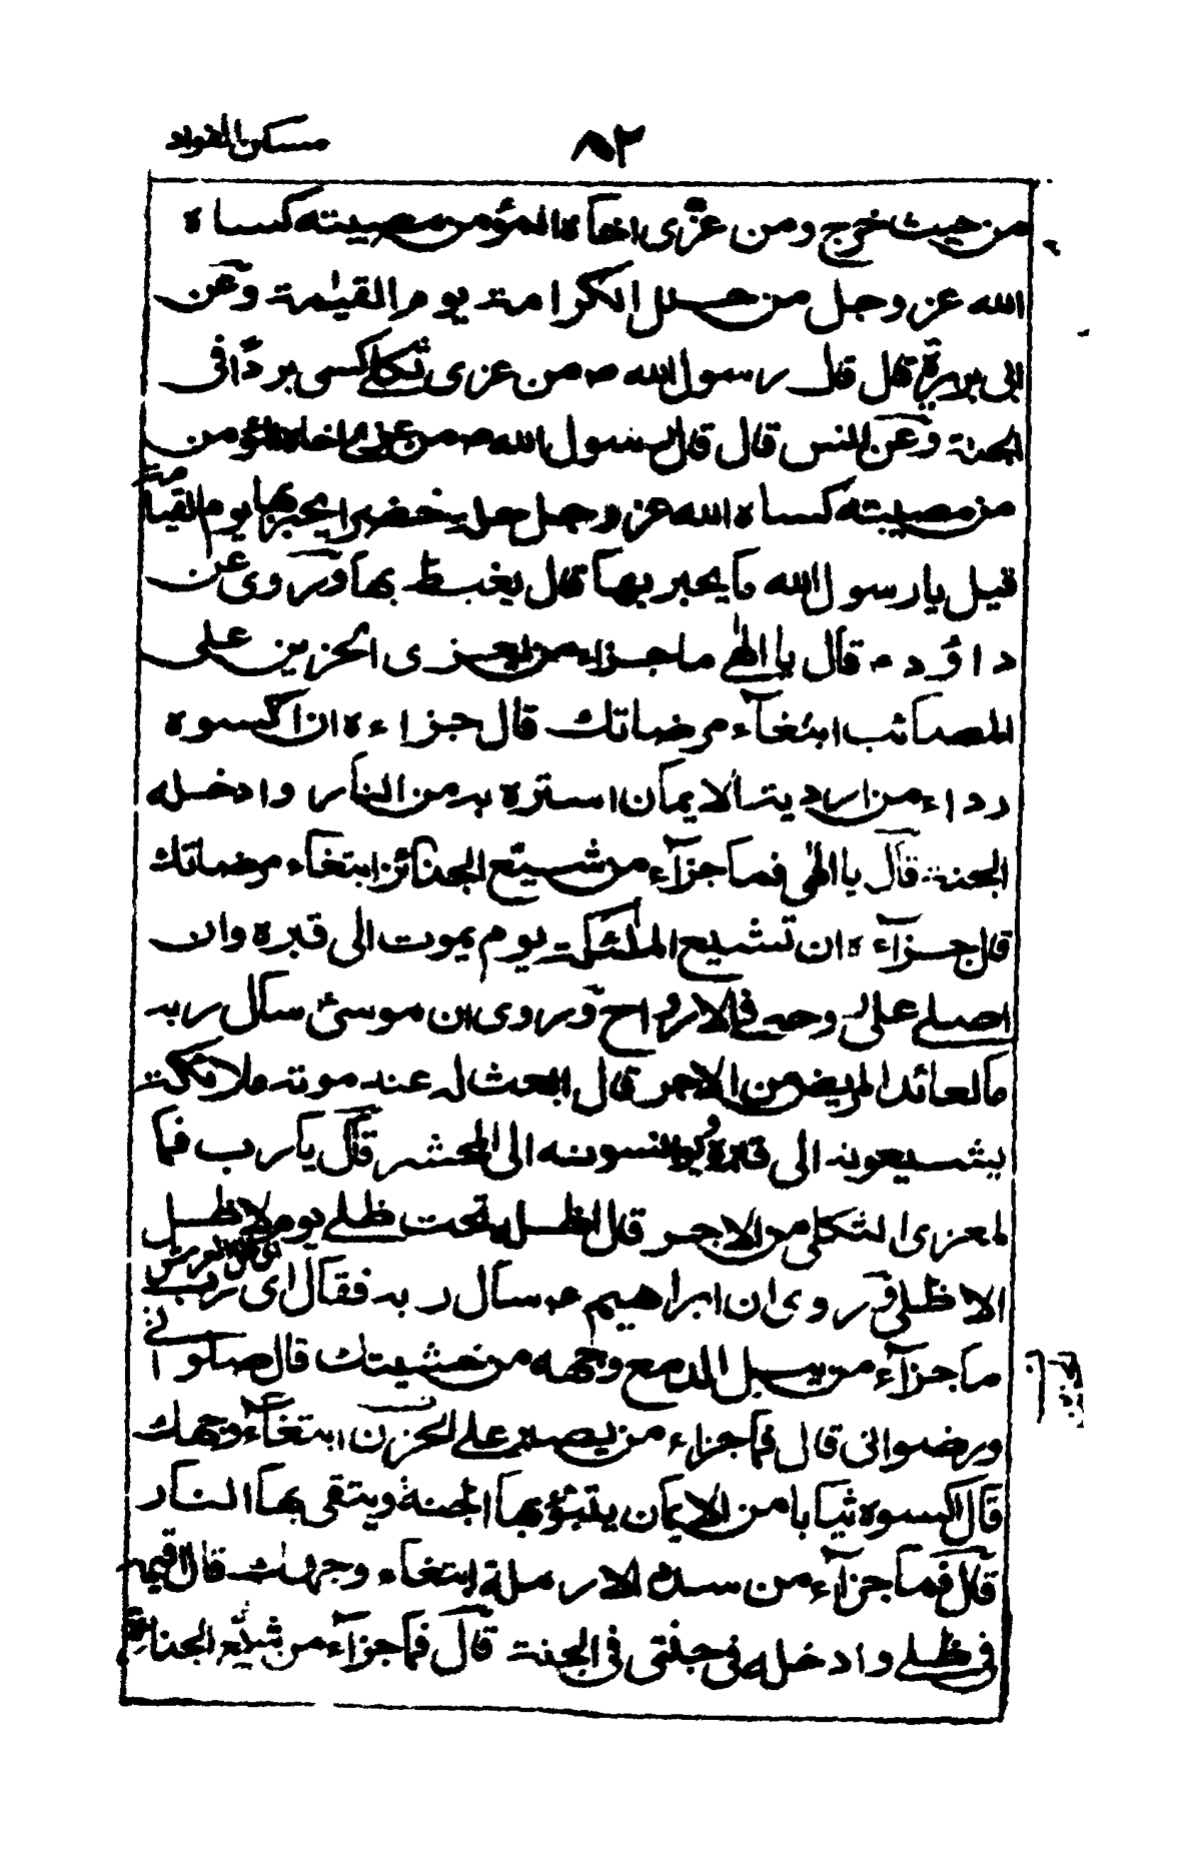 ٨٢
مسكن الفواد
من حيث خرج ومن عزّى اخاه المؤمن مصيبته كساه
الله عز وجل من حلل الكرامة يوم القيٰمة وعن
ابى برزة قال قال رسول الله ص من عزى ثكلى كسى بردًا فى
الجنة وعن انس قال قال رسول الله ص من عزى اخاه المؤمن
من مصيبته كساه الله عز وجل حلة خضراء يحبر بها يوم القيامة
قيل يا رسول الله ما يحبر بها قال يغبط بها وروى عن
داؤد ع قال يا الٰهى ما جزاء من يعزى الحزين على
المصائب ابتغاء مرضاتك قال جزاءه ان اكسوه
رداء من اردية الايمان استره به من النار وادخله
الجنة قال يا الٰهى فما جزآء من شيّع الجنائز ابتغاء مرضاتك
قال جزآءه ان تشيع الملٰئكة يوم يموت الى قبره وان
اصلى على روحه فى الارواح وروى ان موسى سأل ربه
ما لعائد المريض من الاجر قال ابعث له عند موته ملائكة
يشيعونه الى قبره ويوانسونه الى المحشر قال يا رب فما
لمعزى الثكلى من الاجر قال اظله تحت ظلى يوم لا ظل
اى ظل العرش
الا ظلى وروى ان ابراهيم ع سأل ربه فقال اى رب
ما جزآء من يبل الدمع وجهه من خشيتك قال صلواتى
ورضوانى قال فما جزاء من يصبر على الحزن ابتغآء وجهك
قال اكسوه ثيابا من الايمان يتبوّء بها الجنة ويتقى بها النار
قال فما جزآء من سدد الارملة ابتغاء وجهك قال اقيمه
فى ظلى وادخله فى جنتى فى الجنة قال فما جزآء من شيّع الجنازة